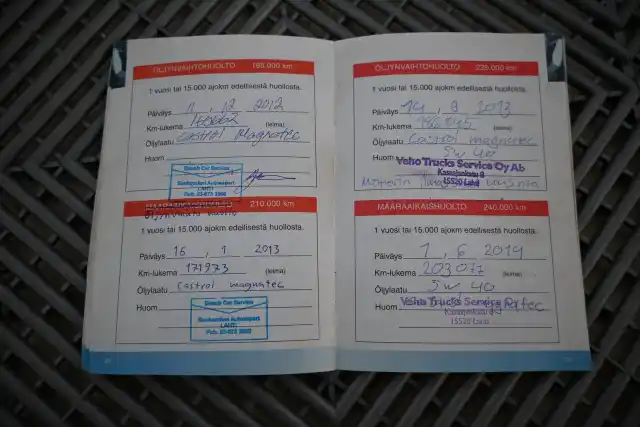 ÖLJYNVAIHTOHUOLTO 195.000 km
1 vuosi tai 15.000 ajokm edellisestä huollosta.
Päiväys 11, 12 2012
Km-lukema (leima)
Öljylaatu Castrol Magnatec
Huom
Bosch Car Service
LAHTI
210.000 km
1 vuosi tai 15.000 ajokm edellisestä huollosta.
Päiväys 16, 1 2013
Km-lukema 171973 (leima)
Öljylaatu Castrol magnatec
Huom.
Bosch Car Service
LAHTI
ÖLJYNVAIHTOHUOLTO 225.000 km
1 vuosi tai 15.000 ajokm edellisestä huollosta.
Päiväys 14, 8 2013
Km-lukema (leima)
Öljylaatu Castrol magnatec
Huom 5w 40
Veho Trucks Service Oy Ab
Kasaajankatu 8
15520 Lahti
MÄÄRÄAIKAISHUOLTO 240.000 km
1 vuosi tai 15.000 ajokm edellisestä huollosta.
Päiväys 1, 6 2014
Km-lukema 203077 (leima)
Öljylaatu 5w 40
Huom.
Veho Trucks Service
Kasaajankatu 8
15520 Lahti